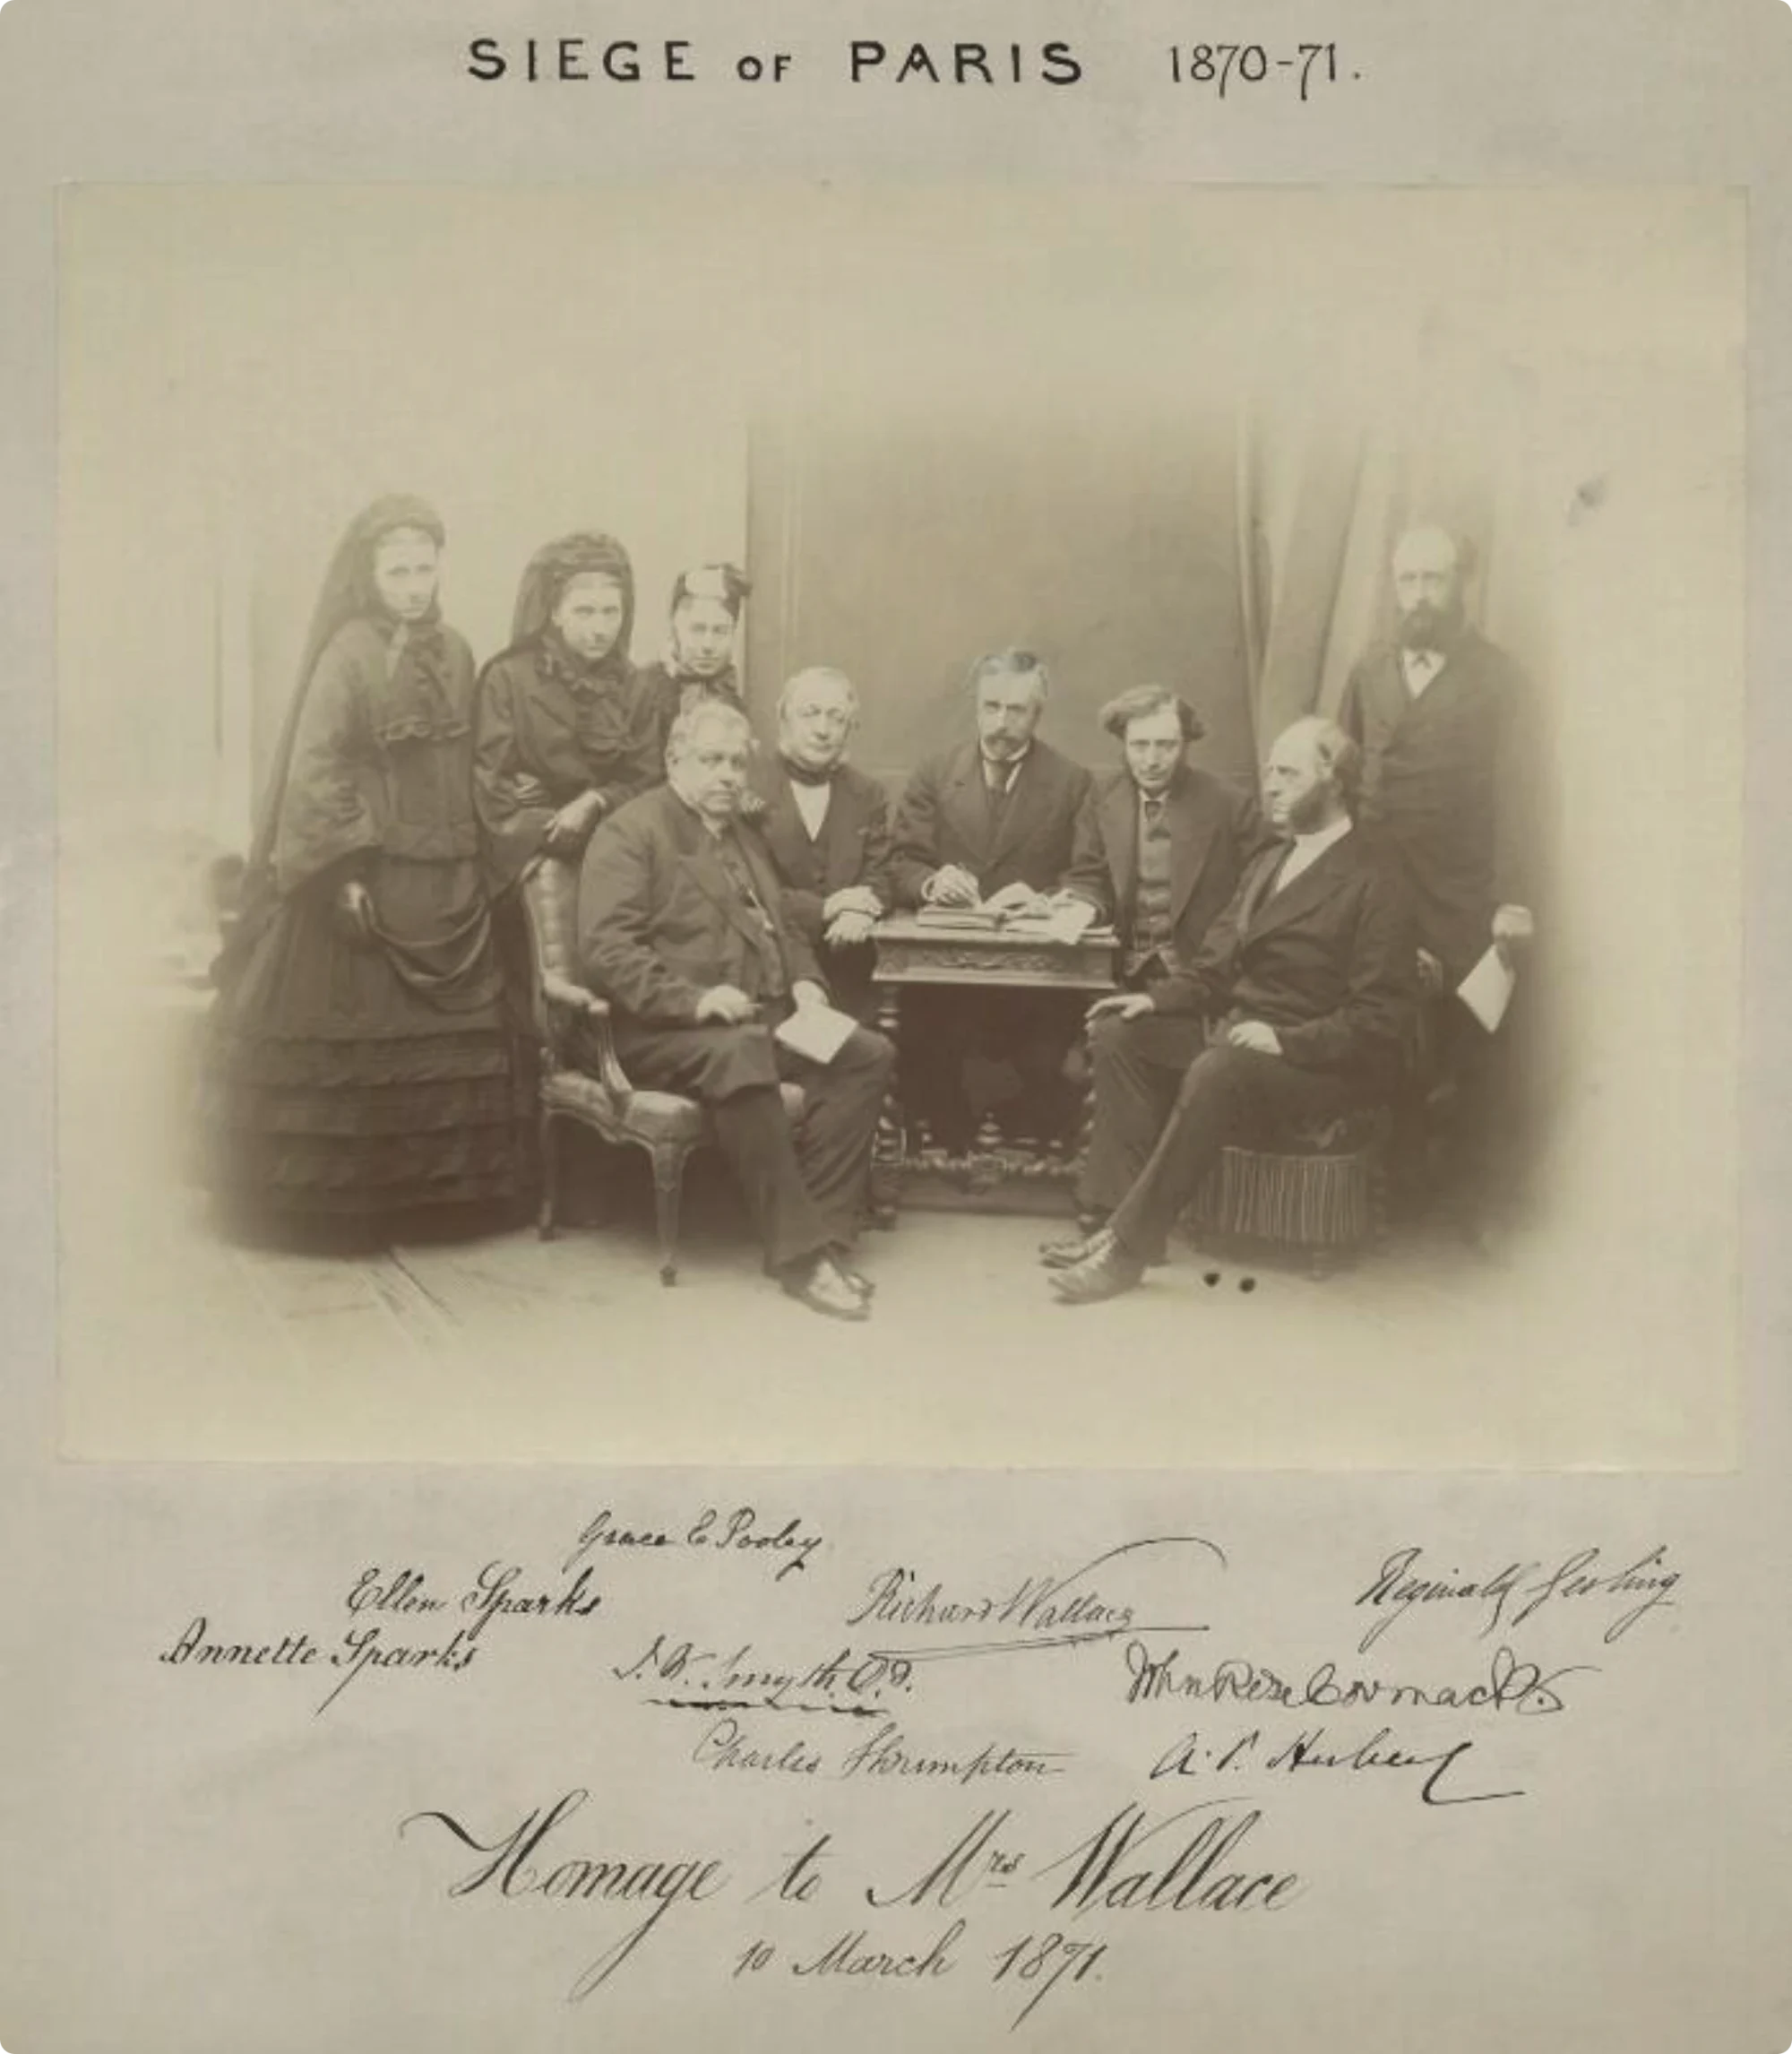 SIEGE OF PARIS 1870-71.
Grace E Pooley
Ellen Sparks
Richard Wallace
Reginald Gesling
Annette Sparks
Smyth
John Rose Cormack
Charles Shrimpton
A. S. Herbert
Homage to Mrs Wallace
10 March 1871.